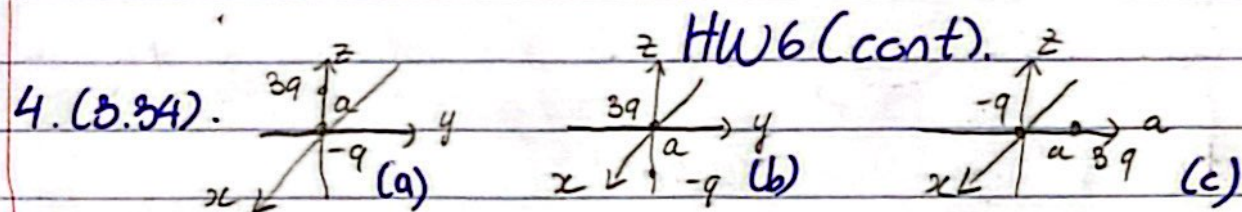 HW6 (cont).
4. (3.34).
z
3q
a
y
-q
x
(a)
z
3q
y
a
x
-q
(b)
z
-q
a
a
3q
x
(c)